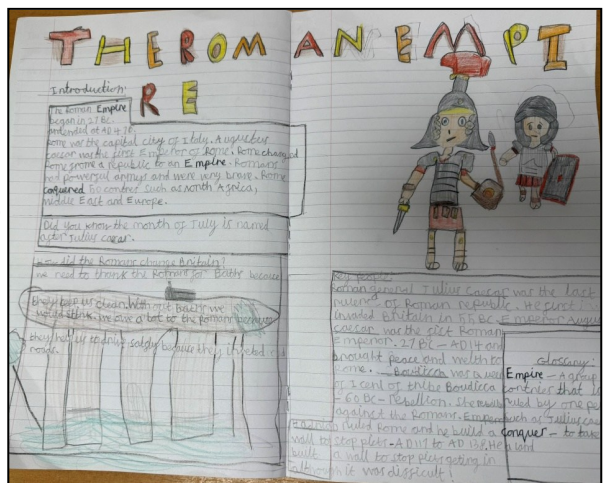 THE ROMAN EMPI
RE
Introduction:
The Roman Empire
began in 27 BC
and ended at AD
Rome was the capital city of Italy. Augustus
caesar was the first Emperor of Rome. Rome changed
Rome from a republic to an Empire. Romans
had powerful armys and were very brave. Rome
coquered 50 contres such as north Africa,
middle East and Europe.
Did you know the month of July is named
after Julius caesar.
How did the Romans change Britain?
We need to thank the Romans for Baths because
they keep us clean. With out Baths we
would stink. We owe a lot to the Romans because
they help us to drive safely because they invented
roads.
Key people:
Roman general Julius Caesar was the last
of Roman republic. He first
invaded Britain in 55 BC. Emperor August
caesar was the first Roman
Emperor. 27 BC - AD14 and
brought peace and welth to
Rome. Boudicca was queen
of Iceni of tribe Boudicca
- 60 BC - rebellion. She
against the Romans. Emperor
Hadrian ruled Rome and he build a
wall to stop picts - AD117 to AD 138. He
built a wall to stop picts geting in
although it was difficult!
Glossary:
Empire - A group
contries that is
ruled by one pe
such as Julius cae
conquer - to take
a land